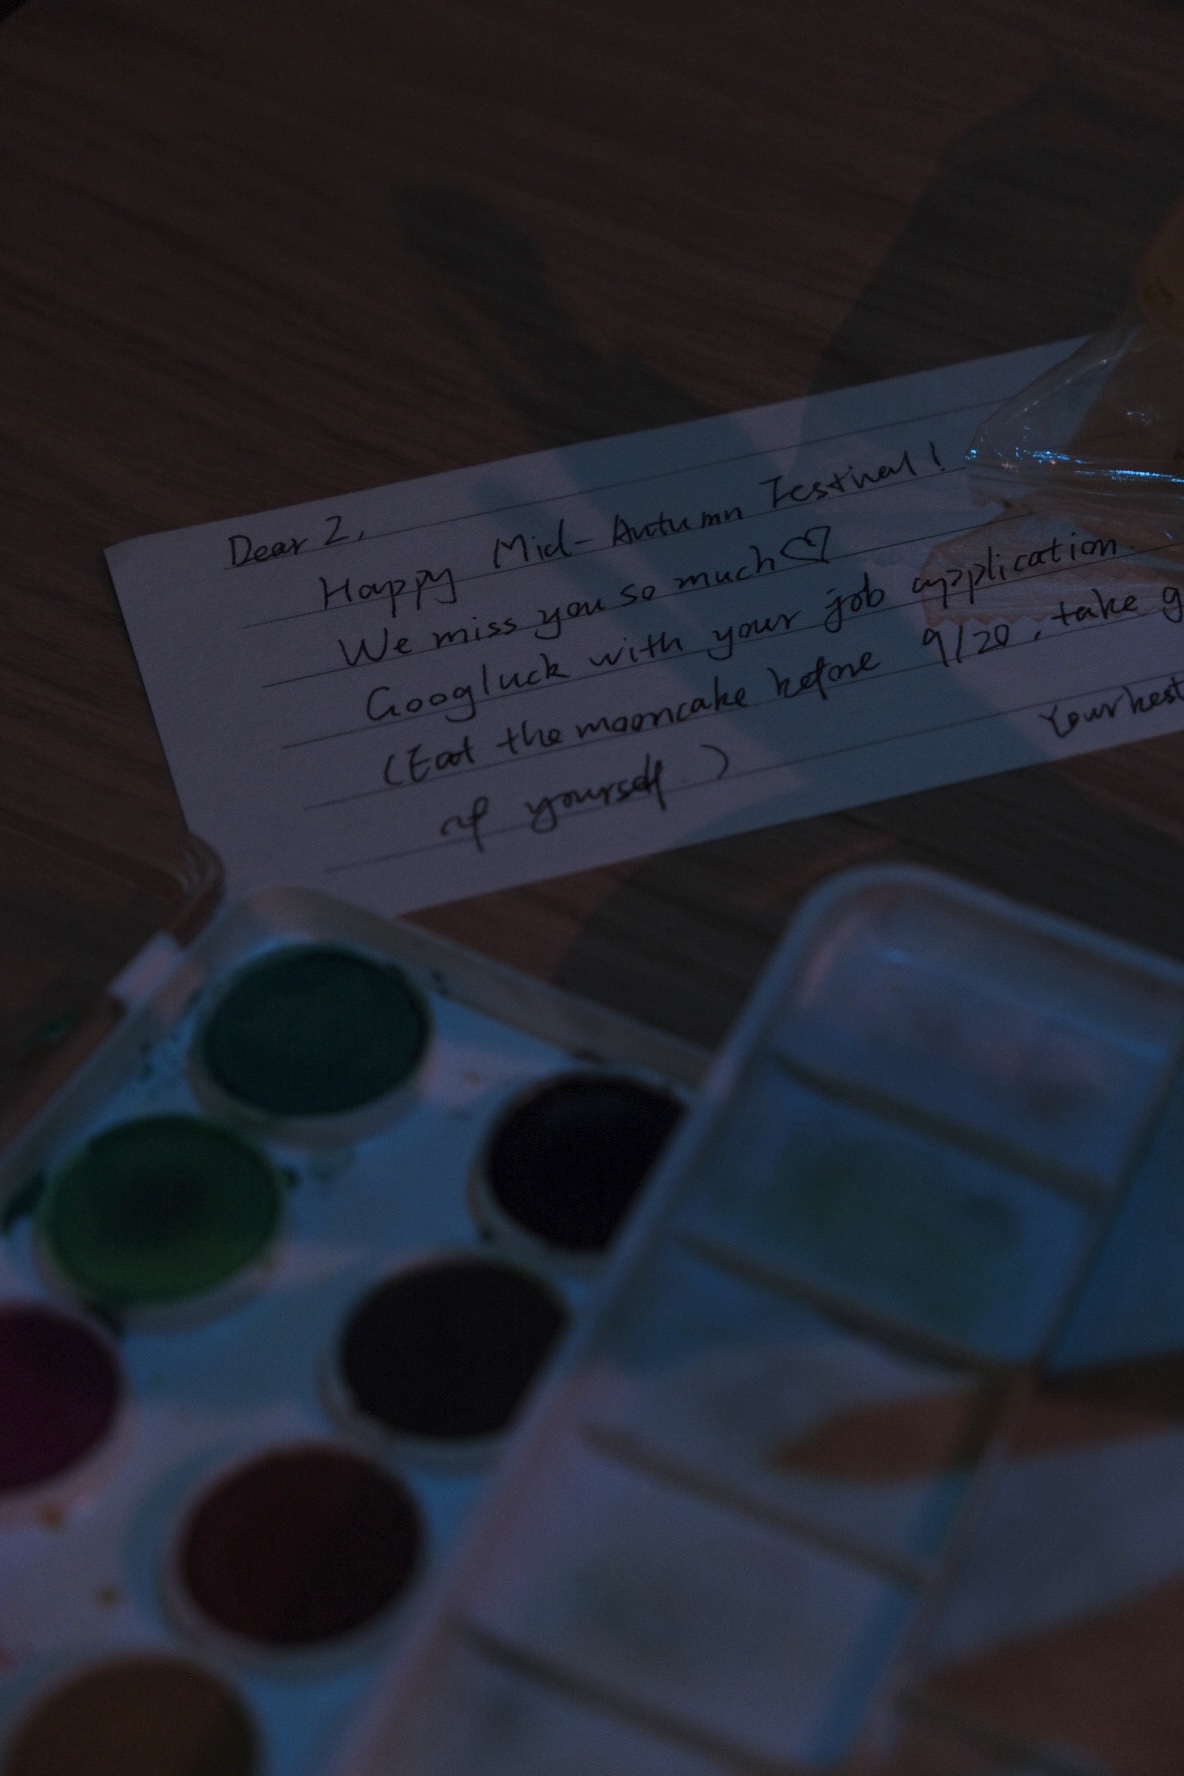 Dear Z,
Happy Mid-Autumn Festival!
We miss you so much♡
Goog luck with your job application.
(Eat the mooncake before 9/20, take g
of yourself.)
Your best